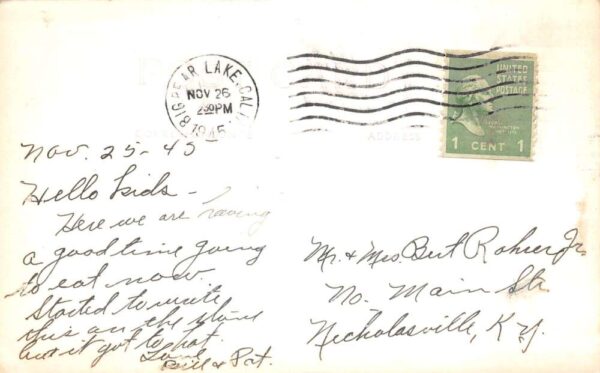 BIG BEAR LAKE, CALIF.
NOV 26
2:30 PM
1945
UNITED
STATES
POSTAGE
1 CENT 1
ADDRESS
Nov. 25-45
Hello kids -
Here we are having
a good time going
to eat now.
Started to write
this on the stove
but it got to hot.
Love
Bill & Pat.
Mr. & Mrs Bert Rohrer Jr.
No. Main Str.
Nicholasville, Ky.